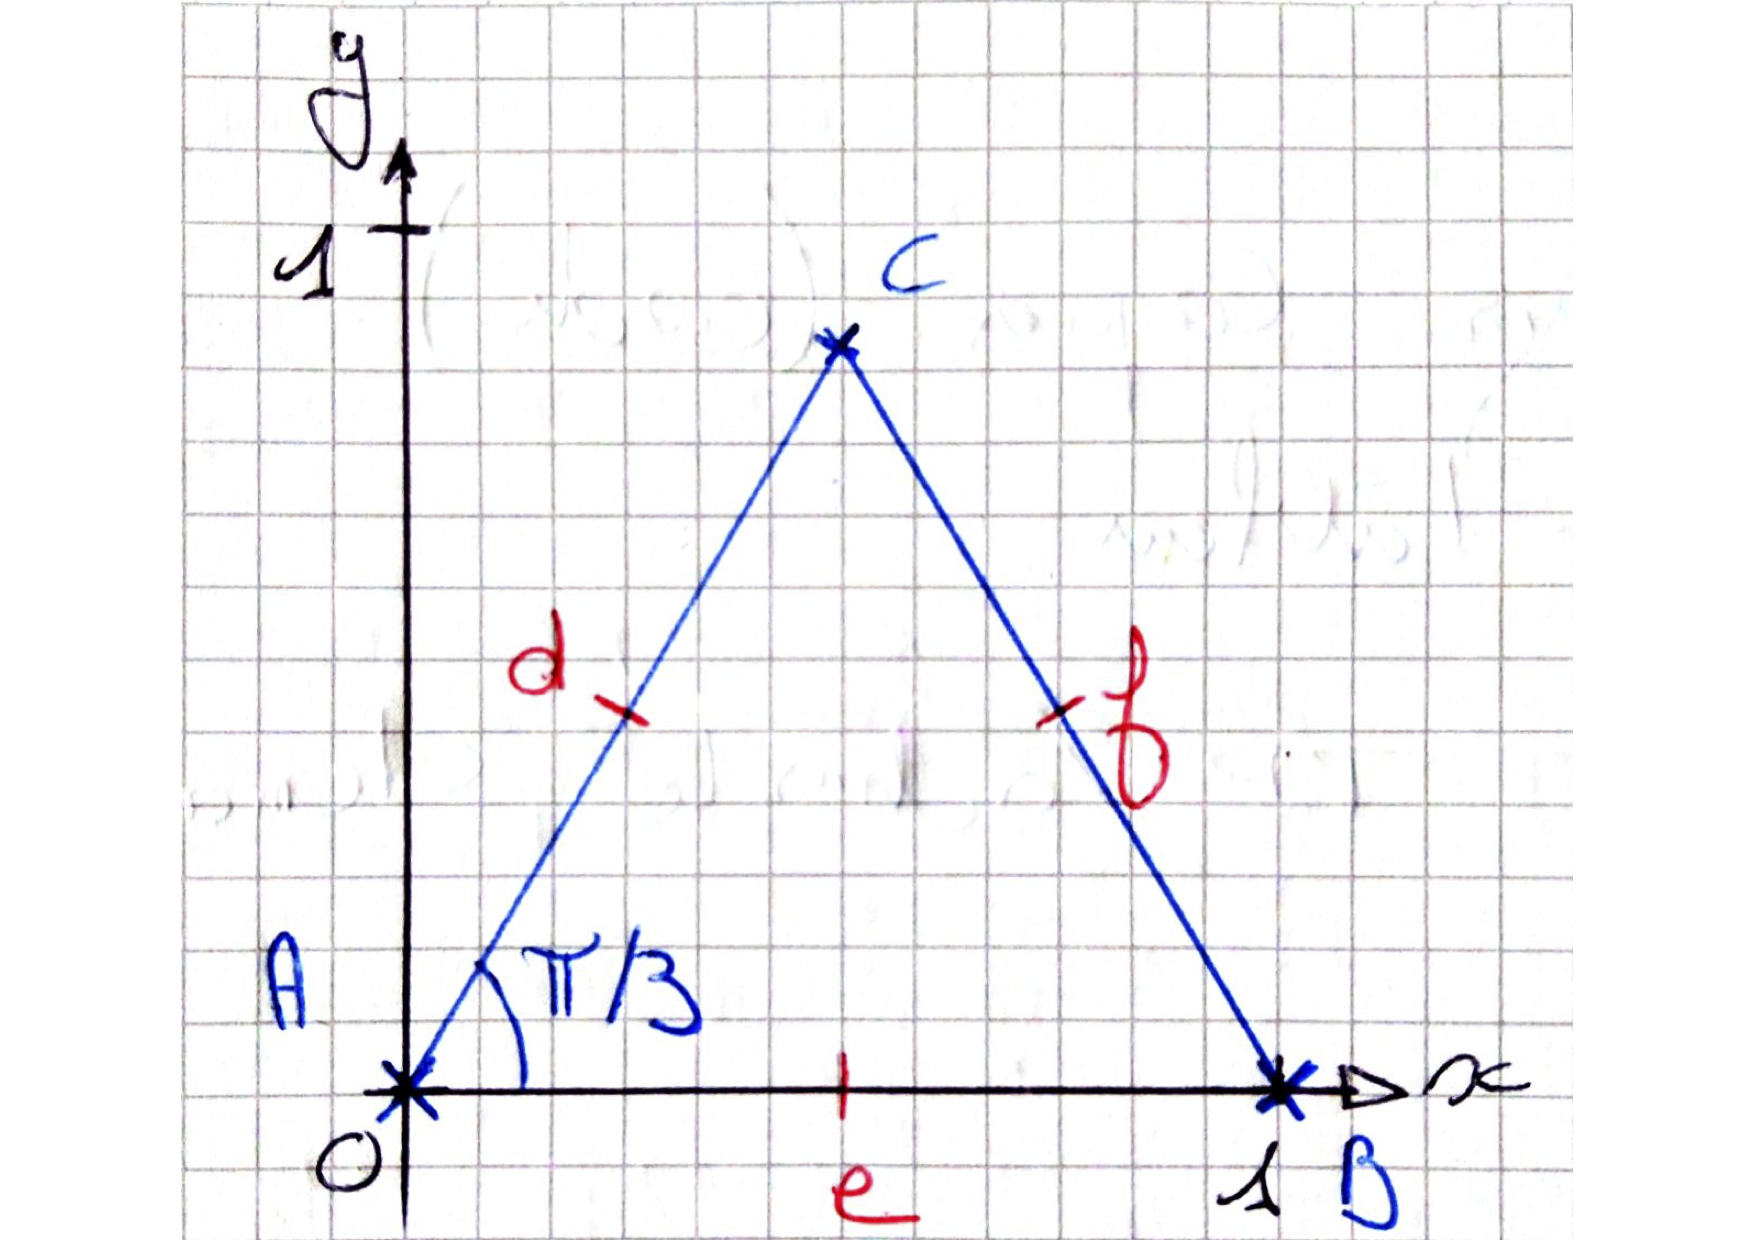 y
1
C
d
f
A
π/3
x
O
e
1
B